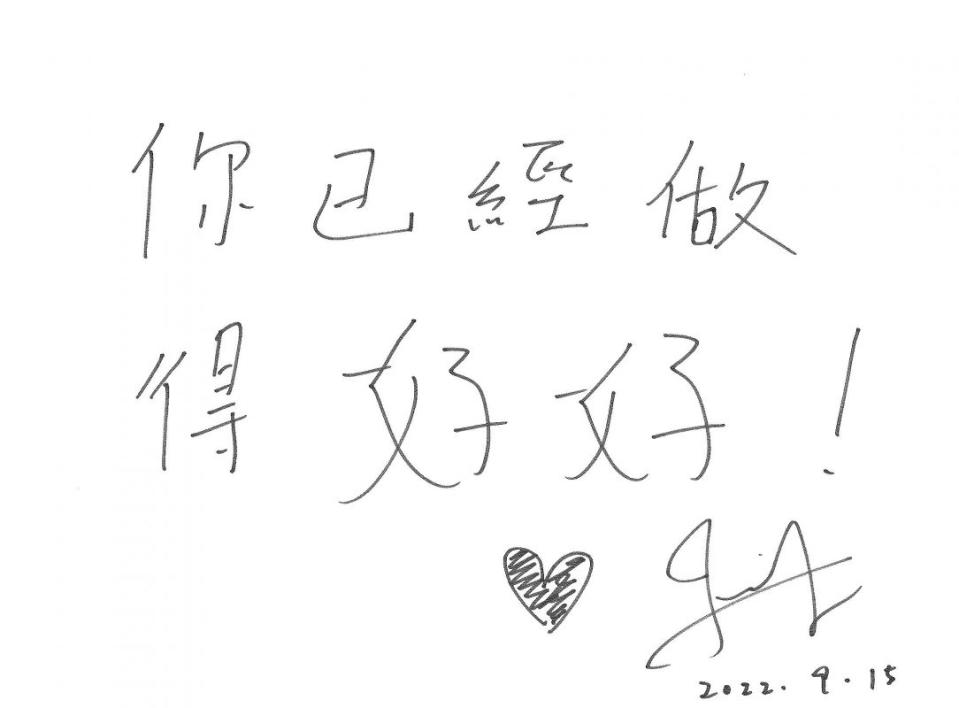 你已經做
得好好！
2022.9.15